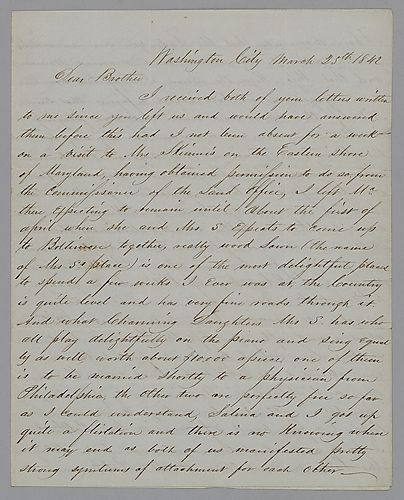 Washington City March 25th 1842
Dear Brother
I received both of your letters written
to me since you left us and would have answered
them before this had I not been absent for a week
on a visit to Mrs on the Eastern shore
of Maryland, having obtained permission to do so from
the Commissioner of the Land Office, I left Ma
there expecting to remain until about the first of
april when she and Mrs S Expects to come up
to together, really wood Lawn (the name
of Mrs S's place) is one of the most delightful places
to spend a few weeks I Ever was at, the Country
is quite level and has very fine roads through it
And what Charming Daughters Mrs S. has who
all play delightfully on the piano and sing equal
ly as well worth about $10.000 apiece one of them
is to be married shortly to a physician from
Philadelphia the other two are perfectly free so far
as I could understand, and I got up
quite a flirtation and there is no Knowing where
it may end as both of us manifested pretty
strong symtums of attachment for each other